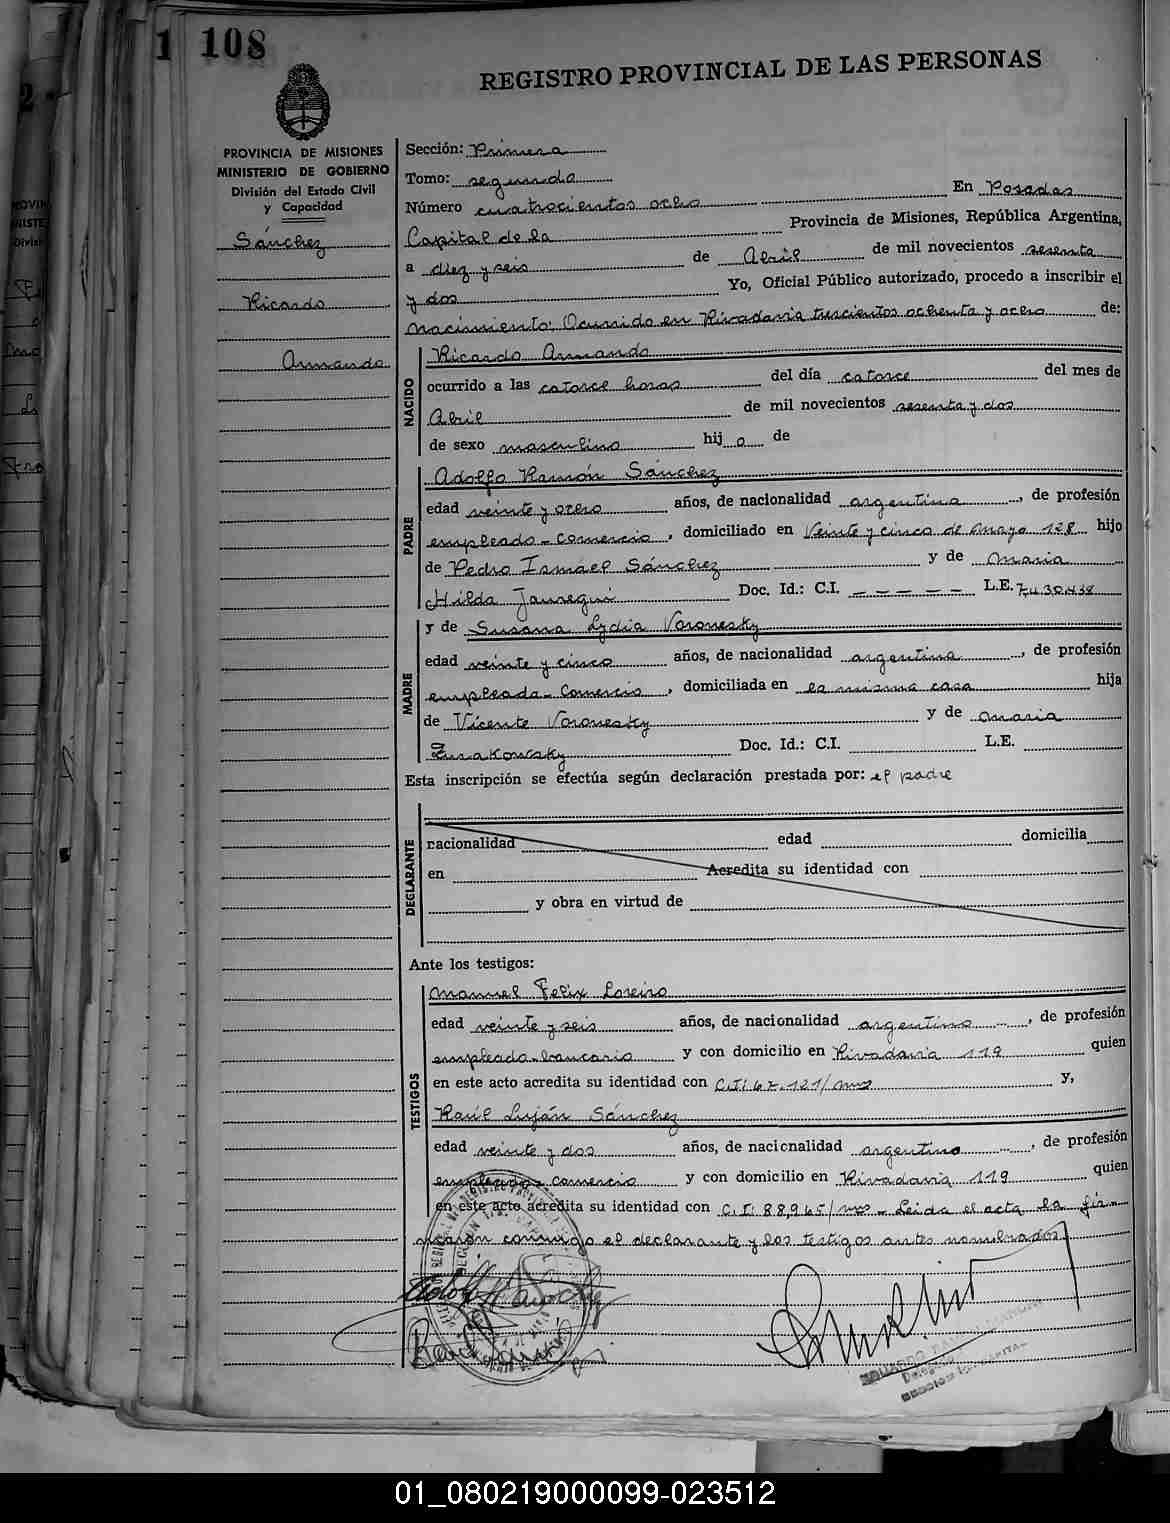 1 108
REGISTRO PROVINCIAL DE LAS PERSONAS
PROVINCIA DE MISIONES
MINISTERIO DE GOBIERNO
División del Estado Civil
y Capacidad
Sánchez
Ricardo
Armando
Sección: Primera
Tomo: segundo
Número cuatrocientos ocho En Posadas
Capital de la Provincia de Misiones, República Argentina,
a diez y seis de Abril de mil novecientos sesenta
y dos Yo, Oficial Público autorizado, procedo a inscribir el
nacimiento: Ocurrido en Rivadavia trescientos ochenta y ocho de:
NACIDO
Ricardo Armando
ocurrido a las catorce horas del día catorce del mes de
Abril de mil novecientos sesenta y dos
de sexo masculino hij o de
PADRE
Adolfo Ramón Sánchez
edad veinte y ocho años, de nacionalidad argentina, de profesión
empleado - comercio, domiciliado en Veinte y cinco de Mayo 128 hijo
de Pedro Ismael Sánchez y de Maria
Hilda Jauregui Doc. Id.: C.I. – – – – – L.E. 7.430.438
MADRE
y de Susana Lydia Voronesky
edad veinte y cinco años, de nacionalidad argentina, de profesión
empleada - comercio, domiciliada en la misma casa hija
de Vicente Voronesky y de Maria
Zurakowsky Doc. Id.: C.I. L.E.
Esta inscripción se efectúa según declaración prestada por: el padre
DECLARANTE
nacionalidad edad domicilia
en Acredita su identidad con
y obra en virtud de
Ante los testigos:
TESTIGOS
Manuel Felix Loreiro
edad veinte y seis años, de nacionalidad argentino, de profesión
empleado - bancario y con domicilio en Rivadavia 119 quien
en este acto acredita su identidad con C.I. y,
Raúl Luján Sánchez
edad veinte y dos años, de nacionalidad argentino, de profesión
empleado - comercio y con domicilio en Rivadavia 119 quien
en este acto acredita su identidad con C.I. 88,965/mos - Leida el acta la fir-
maron conmigo el declarante y los testigos antes nombrados.
01_080219000099-023512